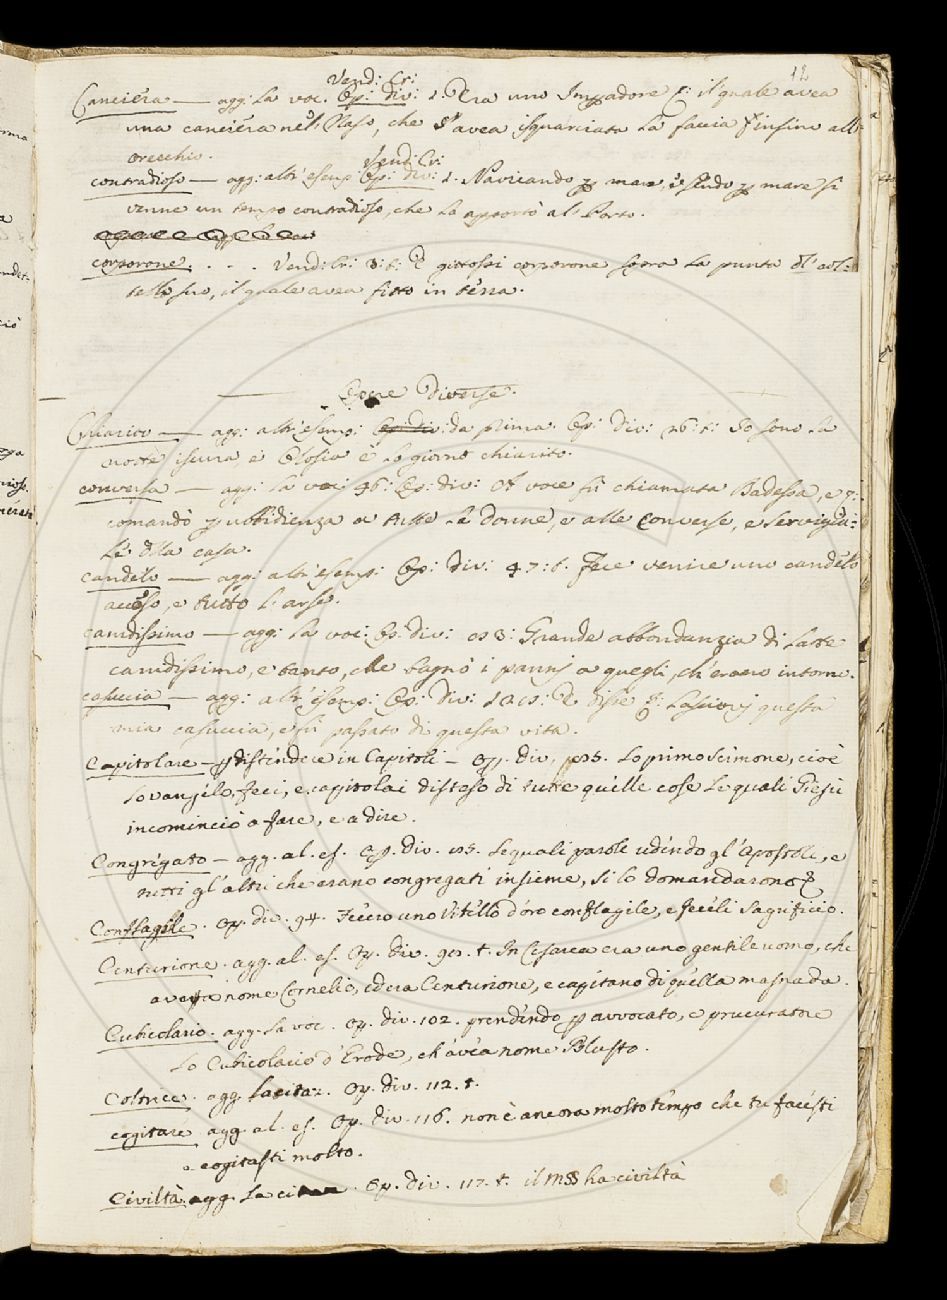 12
Vend: Cr:
Canciera — agg: la voc. Op: div: 1. Era uno Impadore il quale avea
una canciera nel Naso, che l'avea isquarciata la faccia infino all'
orecchio.
Vend: Cr:
contradioso — agg: altr'esemp: Op: div: 1. Navicando p mare, essendo p mare si
venne un tempo contradioso, che lo apportò al Porto.
corporone . . . Vend: Cr: 3: t: E gittossi corporone sopra la punta dl col-
tello suo, il quale avea fitto in terra.
Opere Diverse.
Chiarito — agg: altr'esemp: da prima Op: div: 26: t: Io sono la
notte iscura e lo giorno chiarito.
conversa — agg: la voc: 46: Op: div: voce fù chiamata Badessa, e
comandò p ubbidienza a tutte le Donne, e alle Converse, e servigia-
le dlla casa.
candelo — agg: altr'esemp: Op: div: 47: t. Fece venire uno candelo
acceso, e tutto l'arse.
candissimo — agg: la voc: Op: div: 3: Grande abbondanzia di Latte
candissimo, e tanto, che bagnò i panni a quegli, ch'erano intorno.
casuccia — agg: altr'esemp: Op: div: E disse questa
mia casuccia, e fù passato di questa vita.
Capitolare — p distendere in Capitoli — Op. div. Lo primo Sermone, cioè
Lo vangelo, feci, e capitolai disteso di tutte quelle cose le quali Giesù
incominciò a fare, e a dire.
Congregato — agg. al. es. Op. div. Le quali parole udendo gl'Apostoli, e
tutti gl'altri che erano congregati insieme, si lo domandarono
Conflagile. Op. div. 94. Feciro uno Vitello d'oro conflagile, e feceli Sagrificio.
Centurione. agg. al. es. Op. div. t. In Cesarea era uno gentile uomo, che
avea nome Cornelio, ed era Centurione, e capitano di quella masnada.
Cubicolario. agg. la voc. Op. div. 102. prendendo p avvocato, e pruccuratore
Lo Cubicolario d'Erode, ch'avea nome Blasto.
Coltrice. agg. la citaz. Op. div. 112. t.
cogitare agg. al. es. Op. div. 116. non è ancora molto tempo che tu facesti
e cogitasti molto.
Civiltà agg. la Op. div. 117. t. il MSS ha civiltà